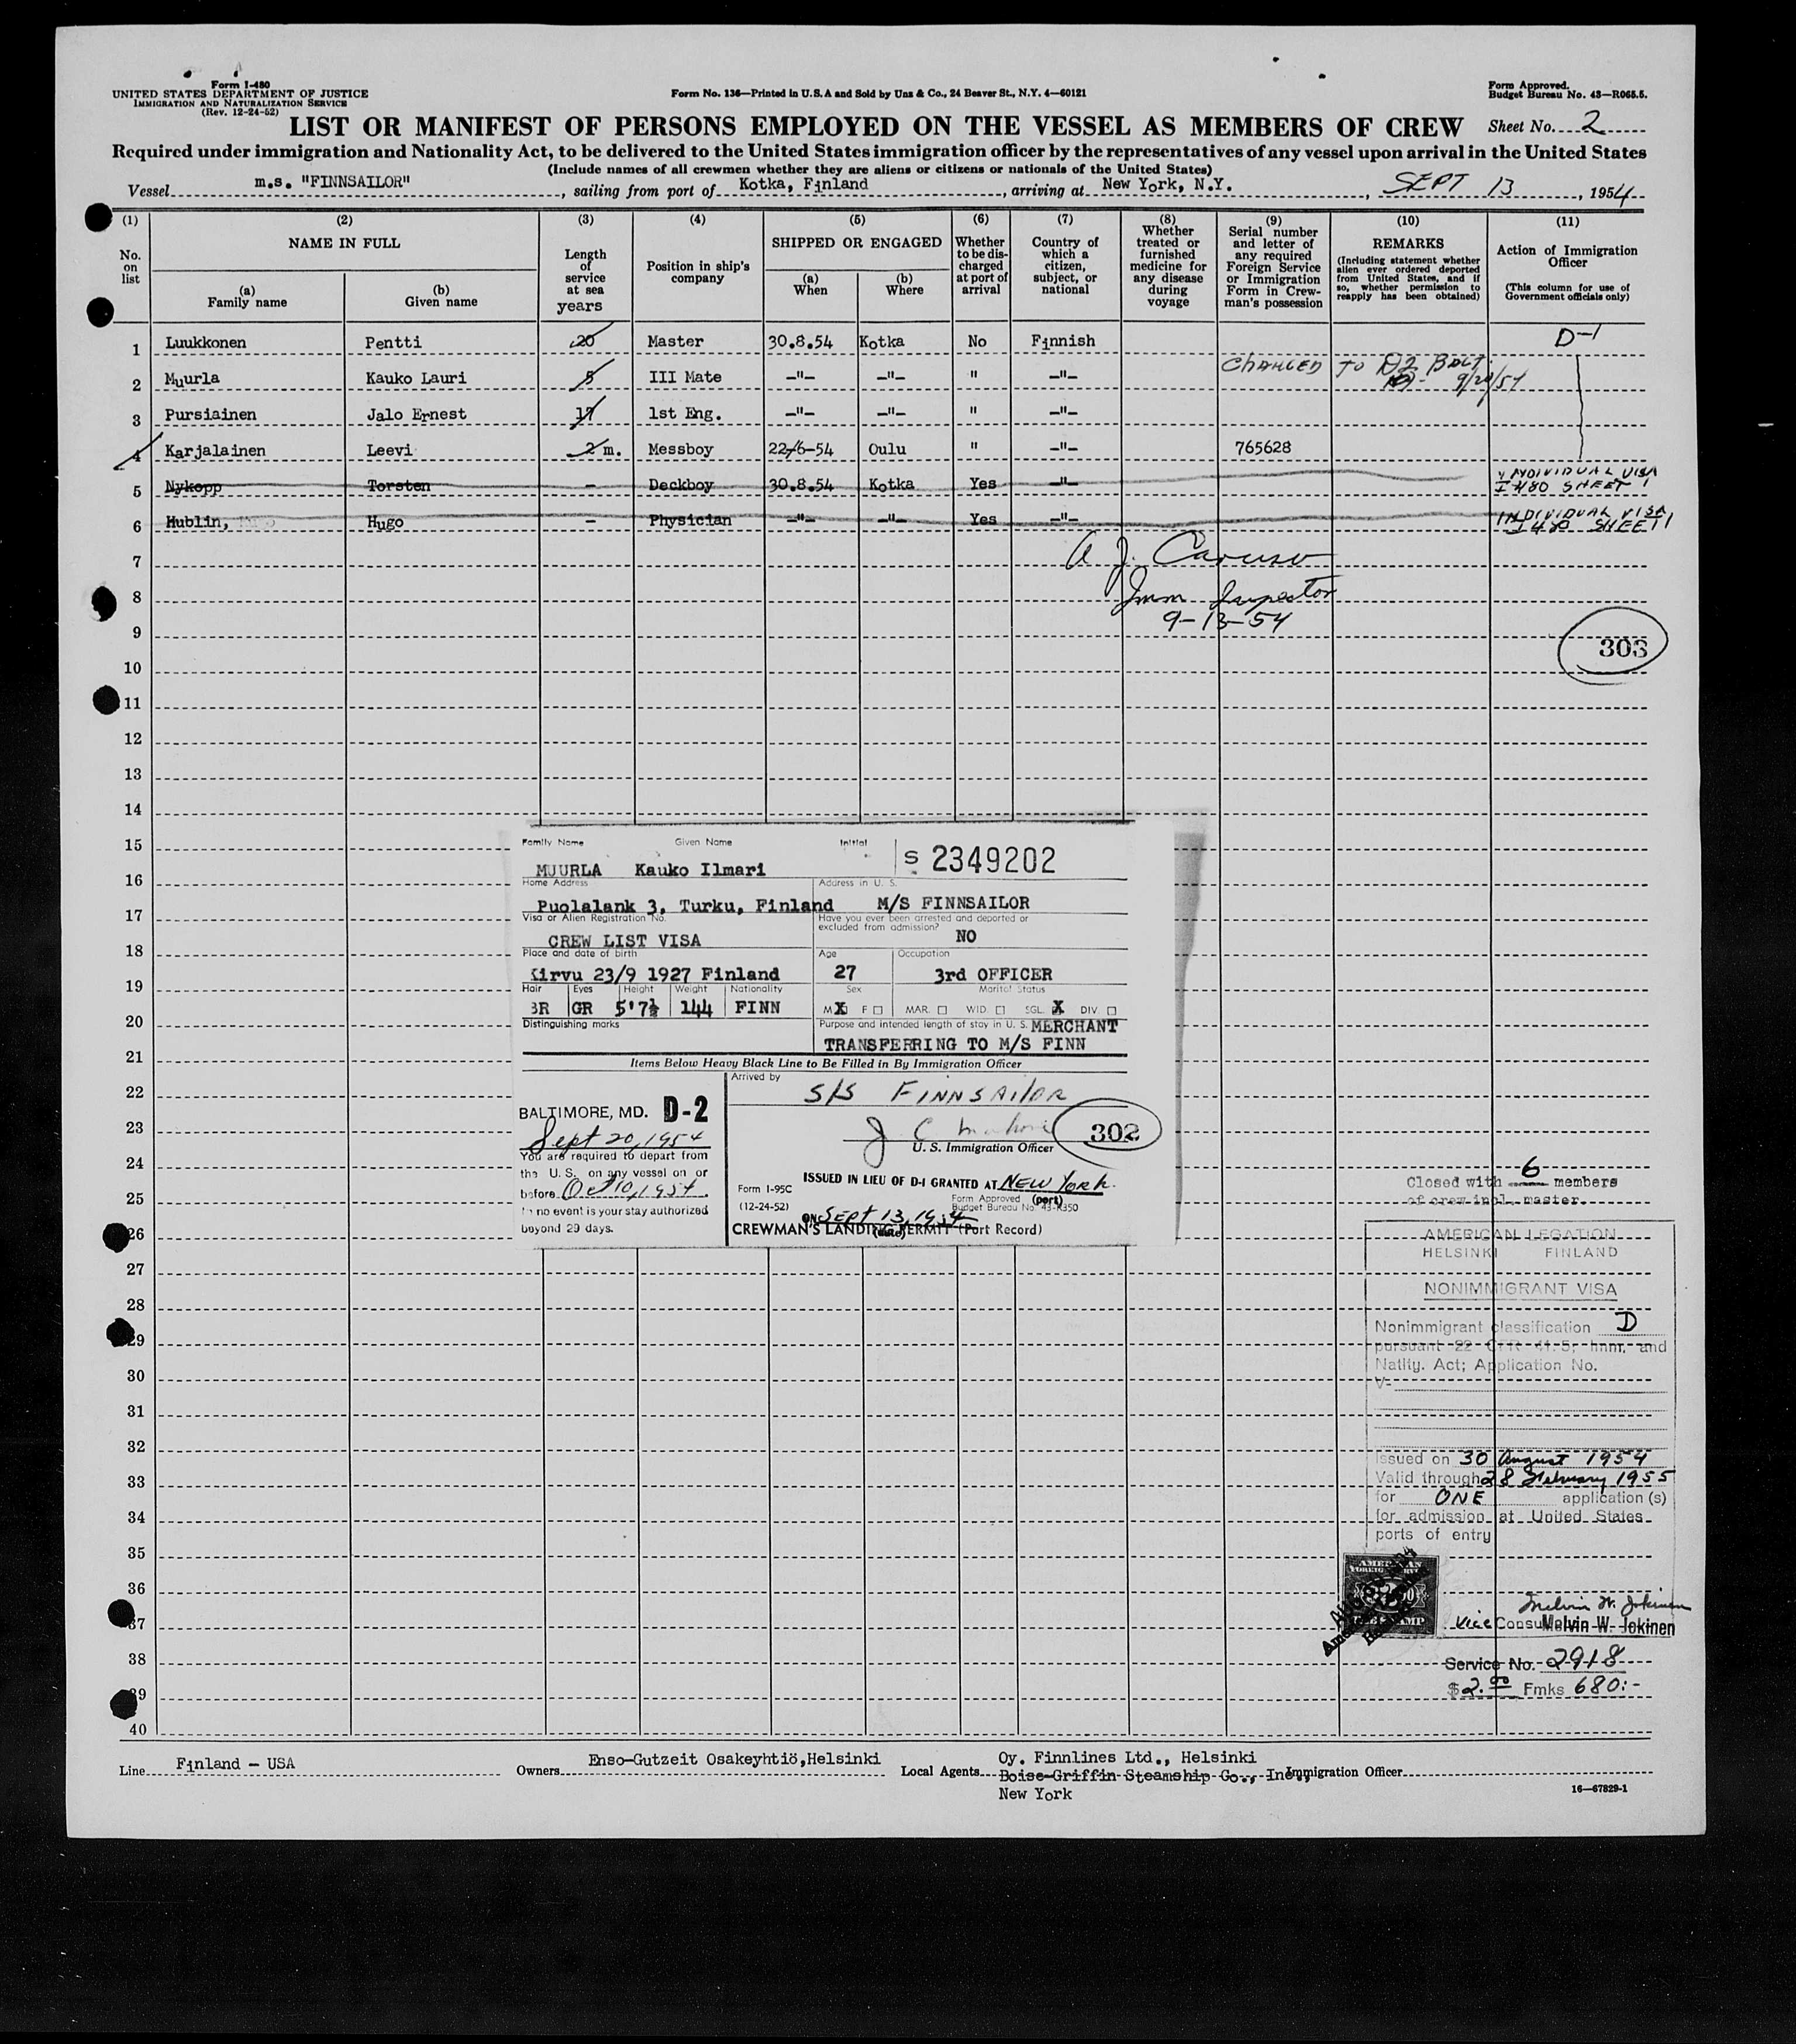 Form I-480
UNITED STATES DEPARTMENT OF JUSTICE
IMMIGRATION AND NATURALIZATION SERVICE
(Rev. 12-24-52)
Form No. 136—Printed in U.S.A and Sold by Unz & Co., 24 Beaver St., N.Y. 4—60121
Form Approved.
Budget Bureau No. 43—R065.5.
LIST OR MANIFEST OF PERSONS EMPLOYED ON THE VESSEL AS MEMBERS OF CREW
Sheet No. 2
Required under immigration and Nationality Act, to be delivered to the United States immigration officer by the representatives of any vessel upon arrival in the United States
(Include names of all crewmen whether they are aliens or citizens or nationals of the United States)
Vessel m.s. "FINNSAILOR", sailing from port of Kotka, Finland, arriving at New York, N.Y., SEPT 13, 1954
(1) (2) (3) (4) (5) (6) (7) (8) (9) (10) (11)
No. on list
NAME IN FULL
(a) Family name
(b) Given name
Length of service at sea years
Position in ship's company
SHIPPED OR ENGAGED
(a) When
(b) Where
Whether to be discharged at port of arrival
Country of which a citizen, subject, or national
Whether treated or furnished medicine for any disease during voyage
Serial number and letter of any required Foreign Service or Immigration Form in Crewman's possession
REMARKS
(Including statement whether alien ever ordered deported from United States, and if so, whether permission to reapply has been obtained)
Action of Immigration Officer
(This column for use of Government officials only)
1 Luukkonen Pentti 20 Master 30.8.54 Kotka No Finnish D-1
2 Muurla Kauko Lauri 5 III Mate —"— —"— " —"— CHANGED TO D2 BALT. 9/20/54
3 Pursiainen Jalo Ernest 17 1st Eng. —"— —"— " —"—
4 Karjalainen Leevi 2 m. Messboy 22-6-54 Oulu " —"— 765628
5 Nykopp Torsten - Deckboy 30.8.54 Kotka Yes —"— INDIVIDUAL VISA I 480 SHEET 1
6 Hublin, Hugo - Physician —"— —"— Yes —"— INDIVIDUAL VISA I 480 SHEET 1
7
A J. Caruso
8
Imm Inspector
9-13-54
9
303
10
11
12
13
14
15
16
17
18
19
20
21
22
23
24
25
26
27
28
29
30
31
32
33
34
35
36
37
38
39
40
Family Name Given Name Initial
MUURLA Kauko Ilmari
S 2349202
Home Address Address in U. S.
Puolalank 3, Turku, Finland M/S FINNSAILOR
Visa or Alien Registration No.
CREW LIST VISA
Have you ever been arrested and deported or excluded from admission? NO
Place and date of birth Age Occupation
Kirvu 23/9 1927 Finland 27 3rd OFFICER
Hair Eyes Height Weight Nationality Sex Marital Status
BR GR 5'7½ 144 FINN M X F MAR. WID. SGL. X DIV
Distinguishing marks
Purpose and intended length of stay in U. S. MERCHANT
TRANSFERRING TO M/S FINN
Items Below Heavy Black Line to Be Filled in By Immigration Officer
Arrived by
S/S FINNSAILOR
BALTIMORE, MD. D-2
Sept 20, 1954
You are required to depart from
the U. S. on any vessel on or
before Oct 10, 1954.
In no event is your stay authorized
beyond 29 days.
J C
302
U. S. Immigration Officer
ISSUED IN LIEU OF D-1 GRANTED AT NEW YORK.
(port)
Form I-95C
(12-24-52)
Form Approved
Budget Bureau No. 43-R350
ON SEPT 13, 1954
(date)
CREWMAN'S LANDING PERMIT (Port Record)
Closed with 6 members
of crew incl. master.
AMERICAN LEGATION
HELSINKI FINLAND
NONIMMIGRANT VISA
Nonimmigrant classification D
pursuant 22 CFR 41.5; Imm. and
Natlty. Act; Application No.
V-
Issued on 30 August 1954
Valid through 28 February 1955
for ONE application (s)
for admission at United States
ports of entry
AMERICAN
FOREIGN SERVICE
FEE STAMP
Melvin W. Jokinen
Vice Consul Melvin W. Jokinen
Service No. 2918
$ 2.00 Fmks 680:-
Line Finland - USA
Owners Enso-Gutzeit Osakeyhtiö, Helsinki
Local Agents Oy. Finnlines Ltd., Helsinki
Boise-Griffin Steamship Co., Inc.,
New York
Immigration Officer
16—67829-1